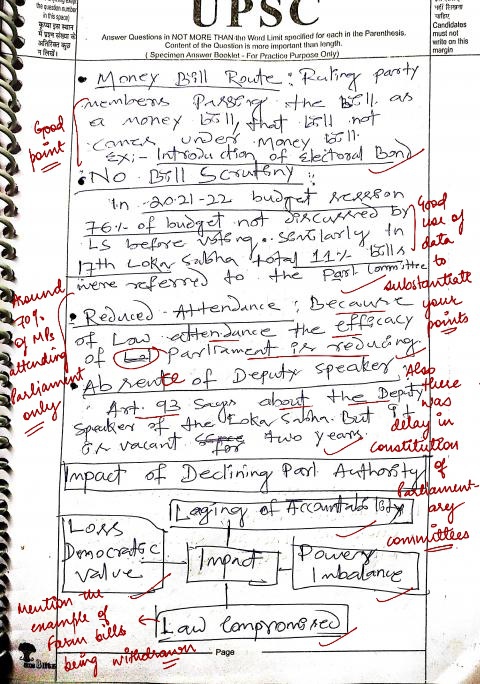 the question number
in this space)
कृपया इस स्थान
में प्रश्न संख्या के
अतिरिक्त कुछ
न लिखें।
UPSC
Answer Questions in NOT MORE THAN the Word Limit specified for each in the Parenthesis.
Content of the Question is more important than length.
( Specimen Answer Booklet - For Practice Purpose Only)
नहीं लिखना
चाहिए
Candidates
must not
write on this
margin
• Money Bill Route: Ruling party
members Passing the bill as
a money bill, that bill not
comes under money bill.
Ex:- Introduction of Electoral Bond
Good
point
• No Bill Scrutiny :
In 2021-22 budget session
76% of budget not discussed by
LS before voting. similarly in
17th Loka Sabha total 11% bills
were referred to the Parl Committee
Good
use of
data
to
substantiate
your
points
• Reduced Attendance : Because
of Low attendance the efficacy
of Parliament is reducing
Around
70%
of MPs
attending
parliament
only
• Absente of Deputy speaker
: Art. 93 Says about the Deputy
speaker of the Loka Sabha. But it
is vacant for two years.
Also
there
was
delay in
constitution
of
Parliament
ary
committees
Impact of Declining Parl Authority
Laging of Accountability
Loss
Democratic
value
Impact
Power
Imbalance
Law Compromised
Mention the
example of
Farm bills
being withdrawn
Page